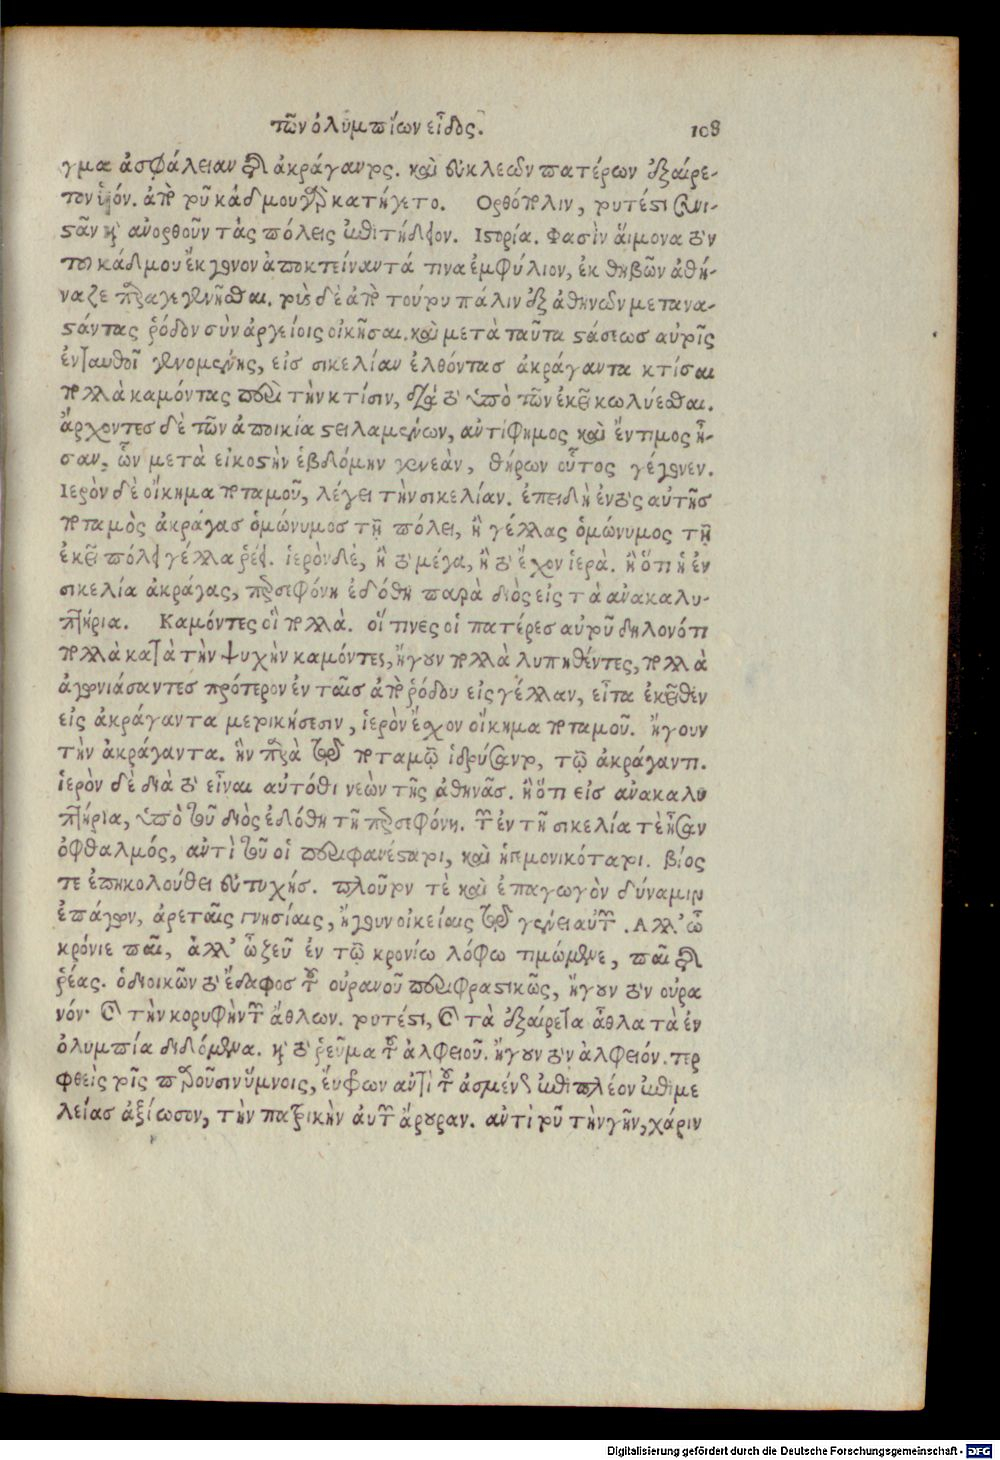 τῶν ὀλυμπίων εἶδος. 108
γμα ἀσφάλειαν τῆς ἀκράγαντος. καὶ εὐκλεῶν πατέρων ἐξαίρε-
τον ἱερόν. ἀπὸ τοῦ κάδμου γὰρ κατήγετο. Ορθόπολιν, τουτέστι συνι-
στᾶν καὶ ἀνορθοῦν τὰς πόλεις ἐπιτήδειον. Ιστορία. Φασὶν αἵμονα τὸν
τοῦ κάδμου ἔκγονον ἀποκτείναντά τινα ἐμφύλιον, ἐκ θηβῶν ἀθή-
ναζε παραγεγενῆσθαι. τοὺς δὲ ἀπὸ τούτου πάλιν ἐξ ἀθηνῶν μετανα-
στάντας ῥόδον σὺν ἀργείοις οἰκῆσαι. καὶ μετὰ ταῦτα στάσεως αὐτοῖς
ἐνταυθοῖ γενομένης, εἰς σικελίαν ἐλθόντας ἀκράγαντα κτίσαι
πολλὰ καμόντας περὶ τὴν κτίσιν, διὰ τὸ ὑπὸ τῶν ἐκεῖ κωλύεσθαι.
ἄρχοντες δὲ τῶν ἀποικία στειλαμένων, ἀντίφημος καὶ ἔντιμος ἦ-
σαν, ὧν μετὰ εἰκοστὴν ἑβδόμην γενεὰν, θήρων οὗτος γέγονεν.
Ιερὸν δὲ οἴκημα ποταμοῦ, λέγει τὴν σικελίαν. ἐπειδὴ ἐντὸς αὐτῆς
ποταμὸς ἀκράγας ὁμώνυμος τῇ πόλει, ἢ γέλλας ὁμώνυμος τῇ
ἐκεῖ πόλει γέλλα ῥέει. ἱερὸν δὲ, ἢ τὸ μέγα, ἢ τὸ ἔχον ἱερά. ἢ ὅτι ἡ ἐν
σικελία ἀκράγας, περσεφόνη ἐδόθη παρὰ διὸς εἰς τὰ ἀνακαλυ-
πτήρια. Καμόντες οἳ πολλὰ. οἵ τινες οἱ πατέρες αὐτοῦ δηλονότι
πολλὰ κατὰ τὴν ψυχὴν καμόντες, ἤγουν πολλὰ λυπηθέντες, πολλὰ
ἀγωνιάσαντες πρότερον ἐν ταῖς ἀπὸ ῥόδου εἰς γέλλαν, εἶτα ἐκεῖθεν
εἰς ἀκράγαντα μετοικήσεσιν, ἱερὸν ἔσχον οἴκημα ποταμοῦ. ἤγουν
τὴν ἀκράγαντα. ἣν παρὰ τῷ ποταμῷ ἱδρύσαντο, τῷ ἀκράγαντι.
ἱερὸν δὲ διὰ τὸ εἶναι αὐτόθι νεὼν τῆς ἀθηνᾶς. ἢ ὅτι εἰς ἀνακαλυ
πτήρια, ὑπὸ τοῦ διὸς ἐδόθη τῇ περσεφόνῃ. τῶν ἐν τῇ σικελία τὲ ἦσαν
ὀφθαλμός, ἀντὶ τοῦ οἱ περιφανέστατοι, καὶ ἡγεμονικώτατοι. βίος
τε ἐπηκολούθει εὐτυχής. πλοῦτον τὲ καὶ ἐπαγωγὸν δύναμιν
ἐπάγων, ἀρεταῖς γνησίαις, ἤγουν οἰκείαις τῷ γένει αὐτῶν. Αλλ' ὦ
κρόνιε παῖ, ἀλλ' ὦ ζεῦ ἐν τῷ κρονίω λόφω τιμώμενε, παῖ τῆς
ῥέας. ὁ διοικῶν τὸ ἔδαφος τοῦ οὐρανοῦ περιφραστικῶς, ἤγουν τὸν οὐρα
νόν· καὶ τὴν κορυφὴν τῶν ἄθλων. τουτέστι, καὶ τὰ ἐξαίρετα ἆθλα τὰ ἐν
ὀλυμπία διδόμενα. καὶ τὸ ῥεῦμα τοῦ ἀλφειοῦ. ἤγουν τὸν ἀλφειόν. τερ
φθεὶς τοῖς παροῦσιν ὕμνοις, εὔφρων ἀντὶ τοῦ ἀσμένως ἐπὶ πλέον ἐπιμε
λείας ἀξίωσον, τὴν πατρικὴν αὐτῶν ἄρουραν. ἀντὶ τοῦ τὴν γῆν, χάριν
Digitalisierung gefördert durch die Deutsche Forschungsgemeinschaft - DFG